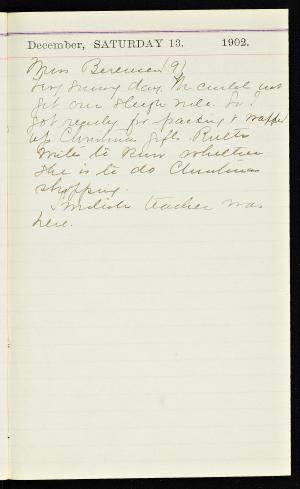 December, SATURDAY 13. 1902.
Miss Berenice (9)
Very snowy day. We could not
get our sleigh ride. So I
got ready for packing & wrapped
up Christmas gifts. Ruth
writes to know whether
she is to do Christmas
shopping.
Swedish teacher was
here.